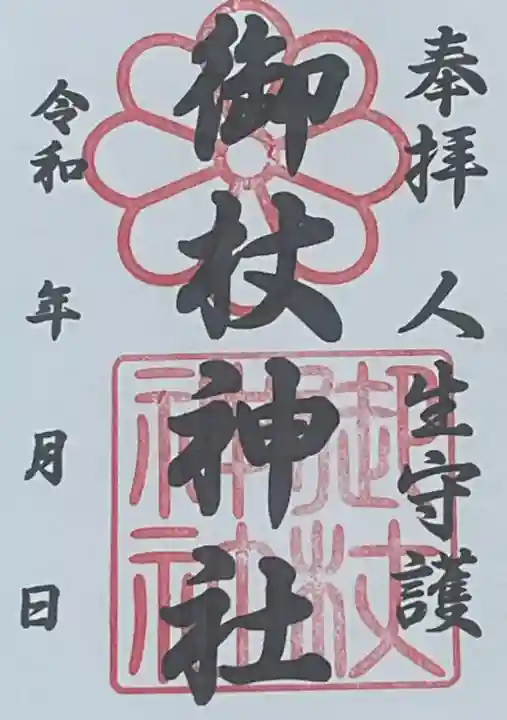 奉拝 人生守護
御杖神社
御杖神社
令和 年 月 日